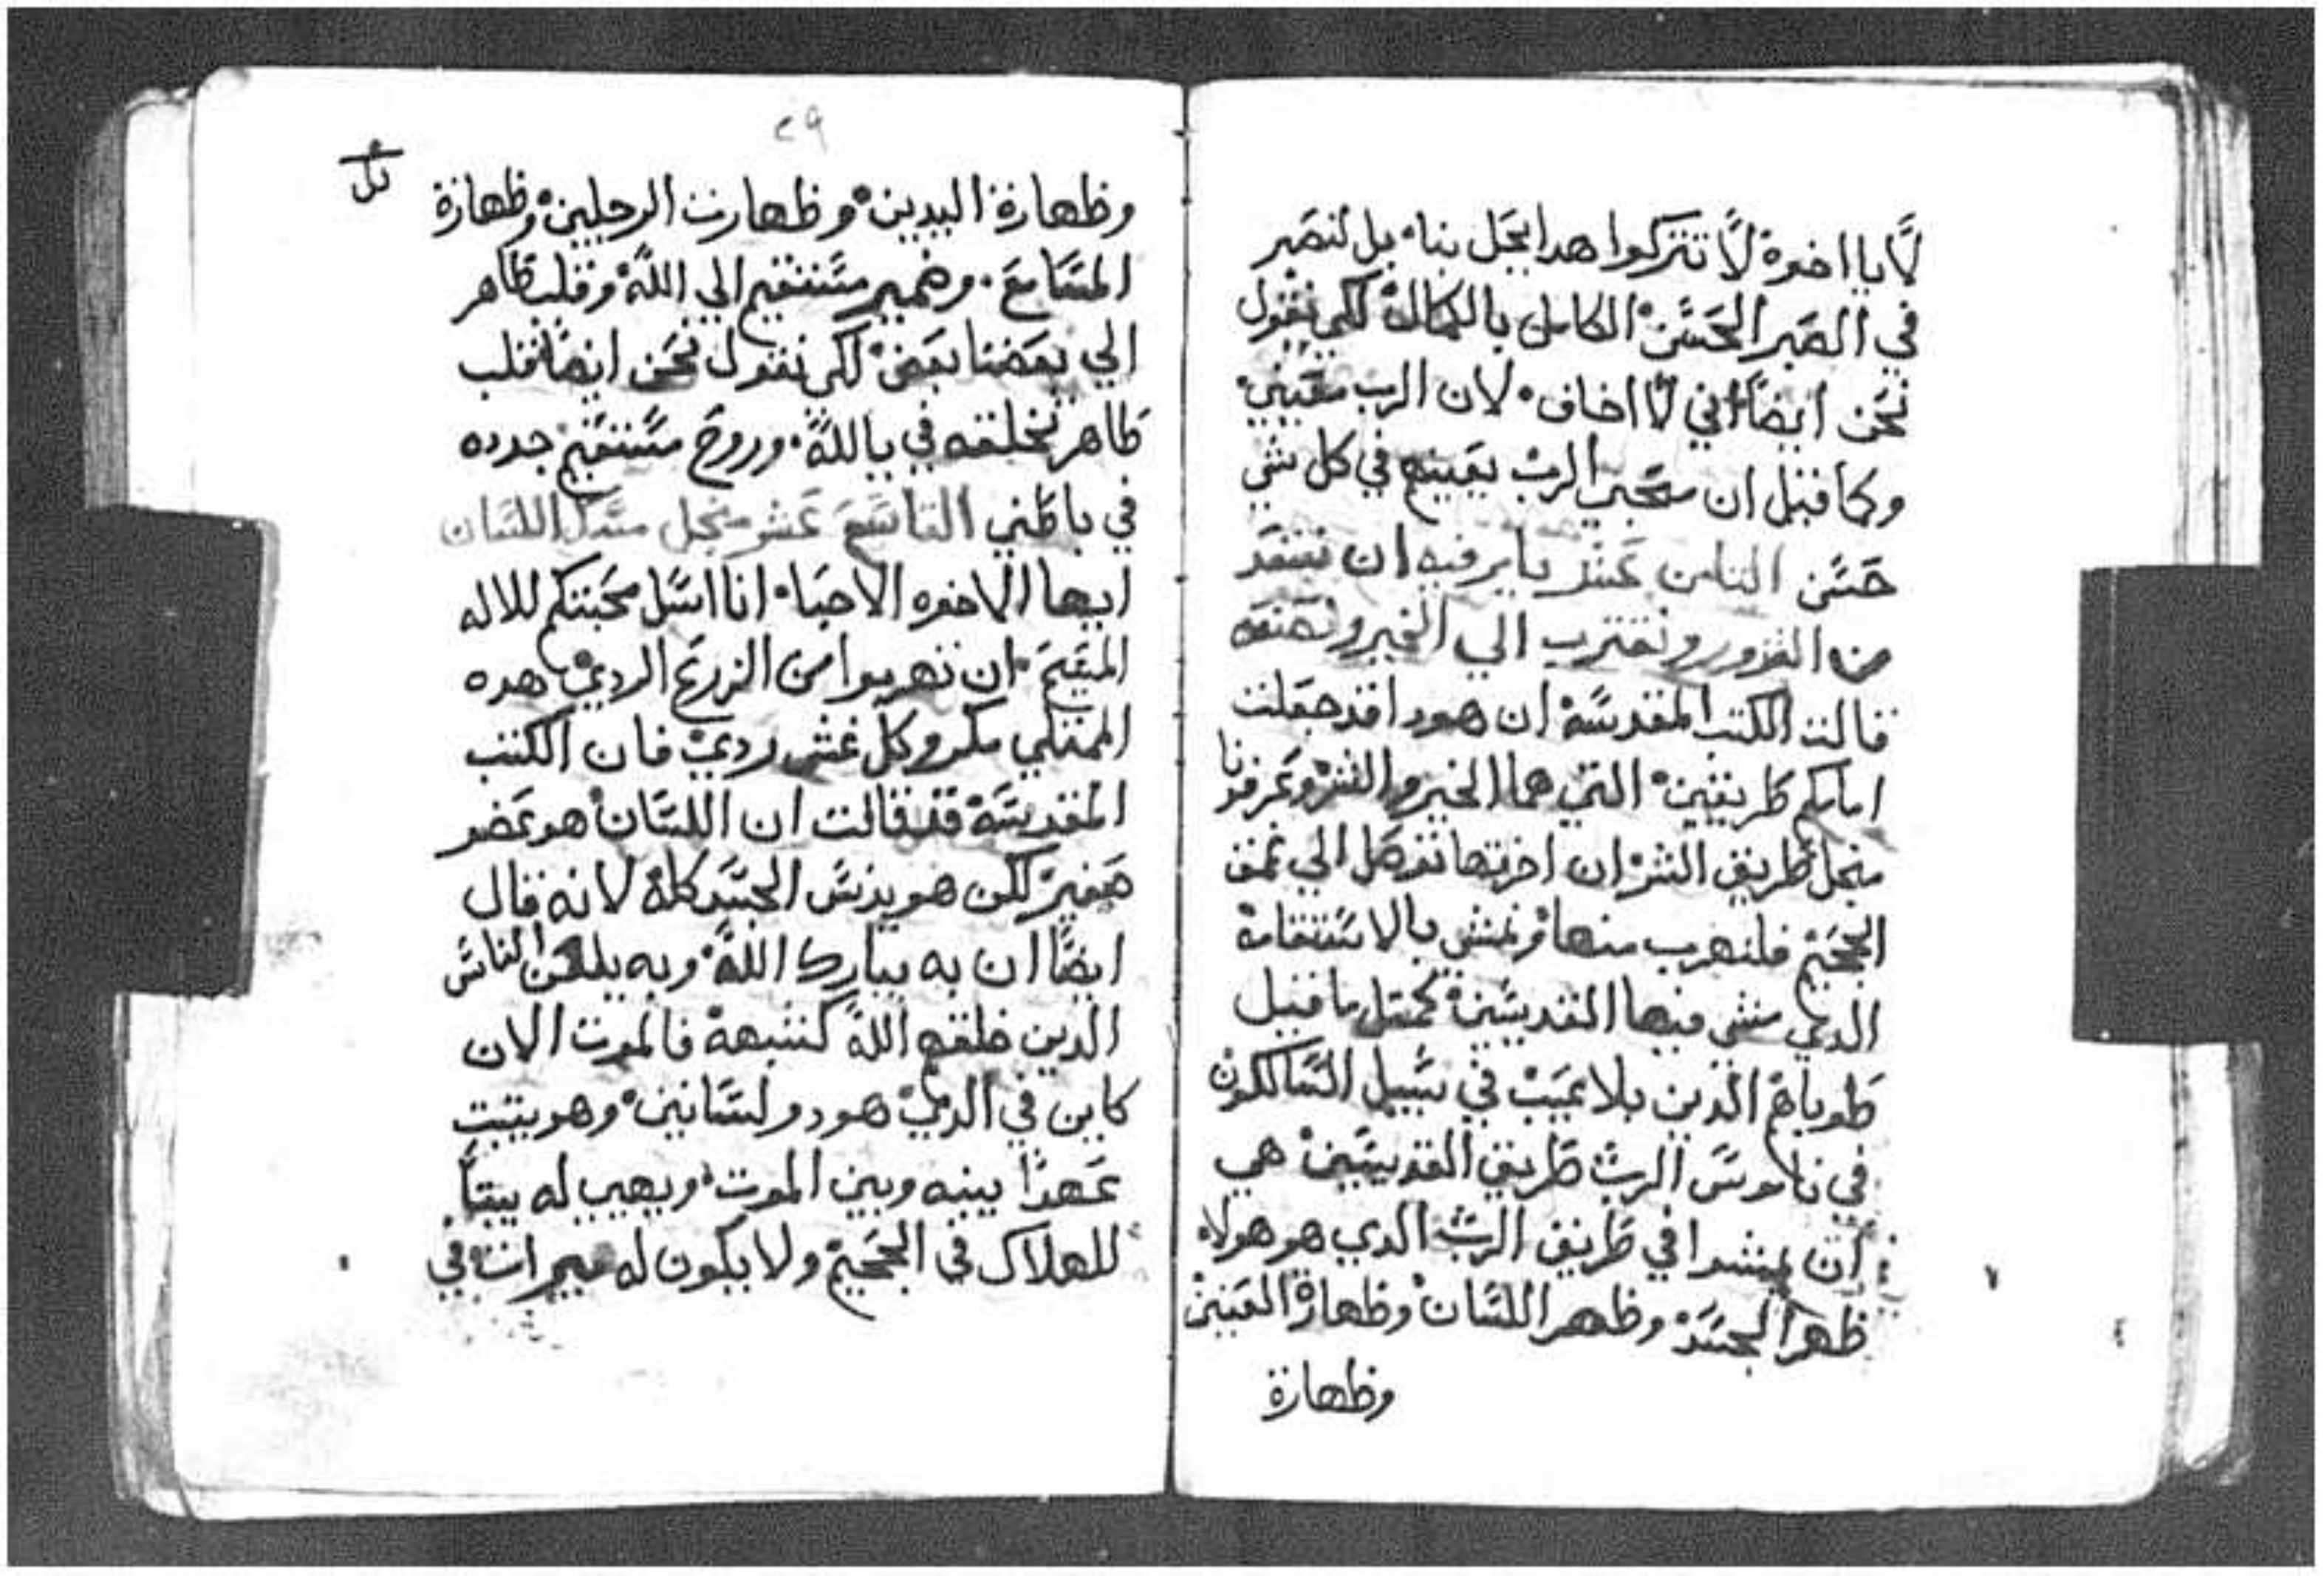 لا يا اخوة لا تتركوا هدا يحل بنا بل لنصبر
في الصبر الحسن الكامل بالكمالة لكي نقول
نحن ايضا اني لا اخاف لان الرب معيني
وكما قيل ان محبي الرب يعينهم في كل شي
حسن الناس عشر يا برفيه ان نبتعد
من الشرور ونقترب الي الخير ونصنعه
قالت الكتب المقدسة ان هودا قد جعلت
امامكم طريقين التي هما الخير والشر وعرفونا
منجل طريق الشر ان اخرتها توصل الي عمق
الجحيم فلنهرب منها ونمشي بالاستقامة
الدي مشي فيها القديسين كمتل ما قيل
طوباهم الدين بلا عيب في سبيل السالكون
في ناموس الرب طريق القديسين هي
ان يمشوا في طريق الرب الدي هو هولاء
ظهر الجسد وظهر اللسان وظهارة العينين
وظهارة
٢٩
وظهارة اليدين وظهارت الرجلين وظهارة
المسامع وضمير مستقيم الي الله وقلب طاهر
الي بعضنا بعض لكي نقول نحن ايضا قلب
طاهر تخلقه في يا الله وروح مستقيم جدده
في باطني التاسع عشر منجل مسك اللسان
ايها الاخوه الاحبا انا اسل محبتكم للاله
المقيم ان تهربوا من الزرع الردي هده
الممتلي مكر وكل غش ردي فان الكتب
المقدسة قد قالت ان اللسان هو عضو
صغير لكن هو يدنس الجسد كله لانه قال
ايضا ان به يبارك الله وبه يلعن الناس
الدين خلقهم الله كشبهه فالموت الان
كاين في الدي هو دو لسانين وهو يتبت
عهدا بينه وبين الموت ويهيي له بيتا
للهلاك في الجحيم ولا يكون له ميرات في